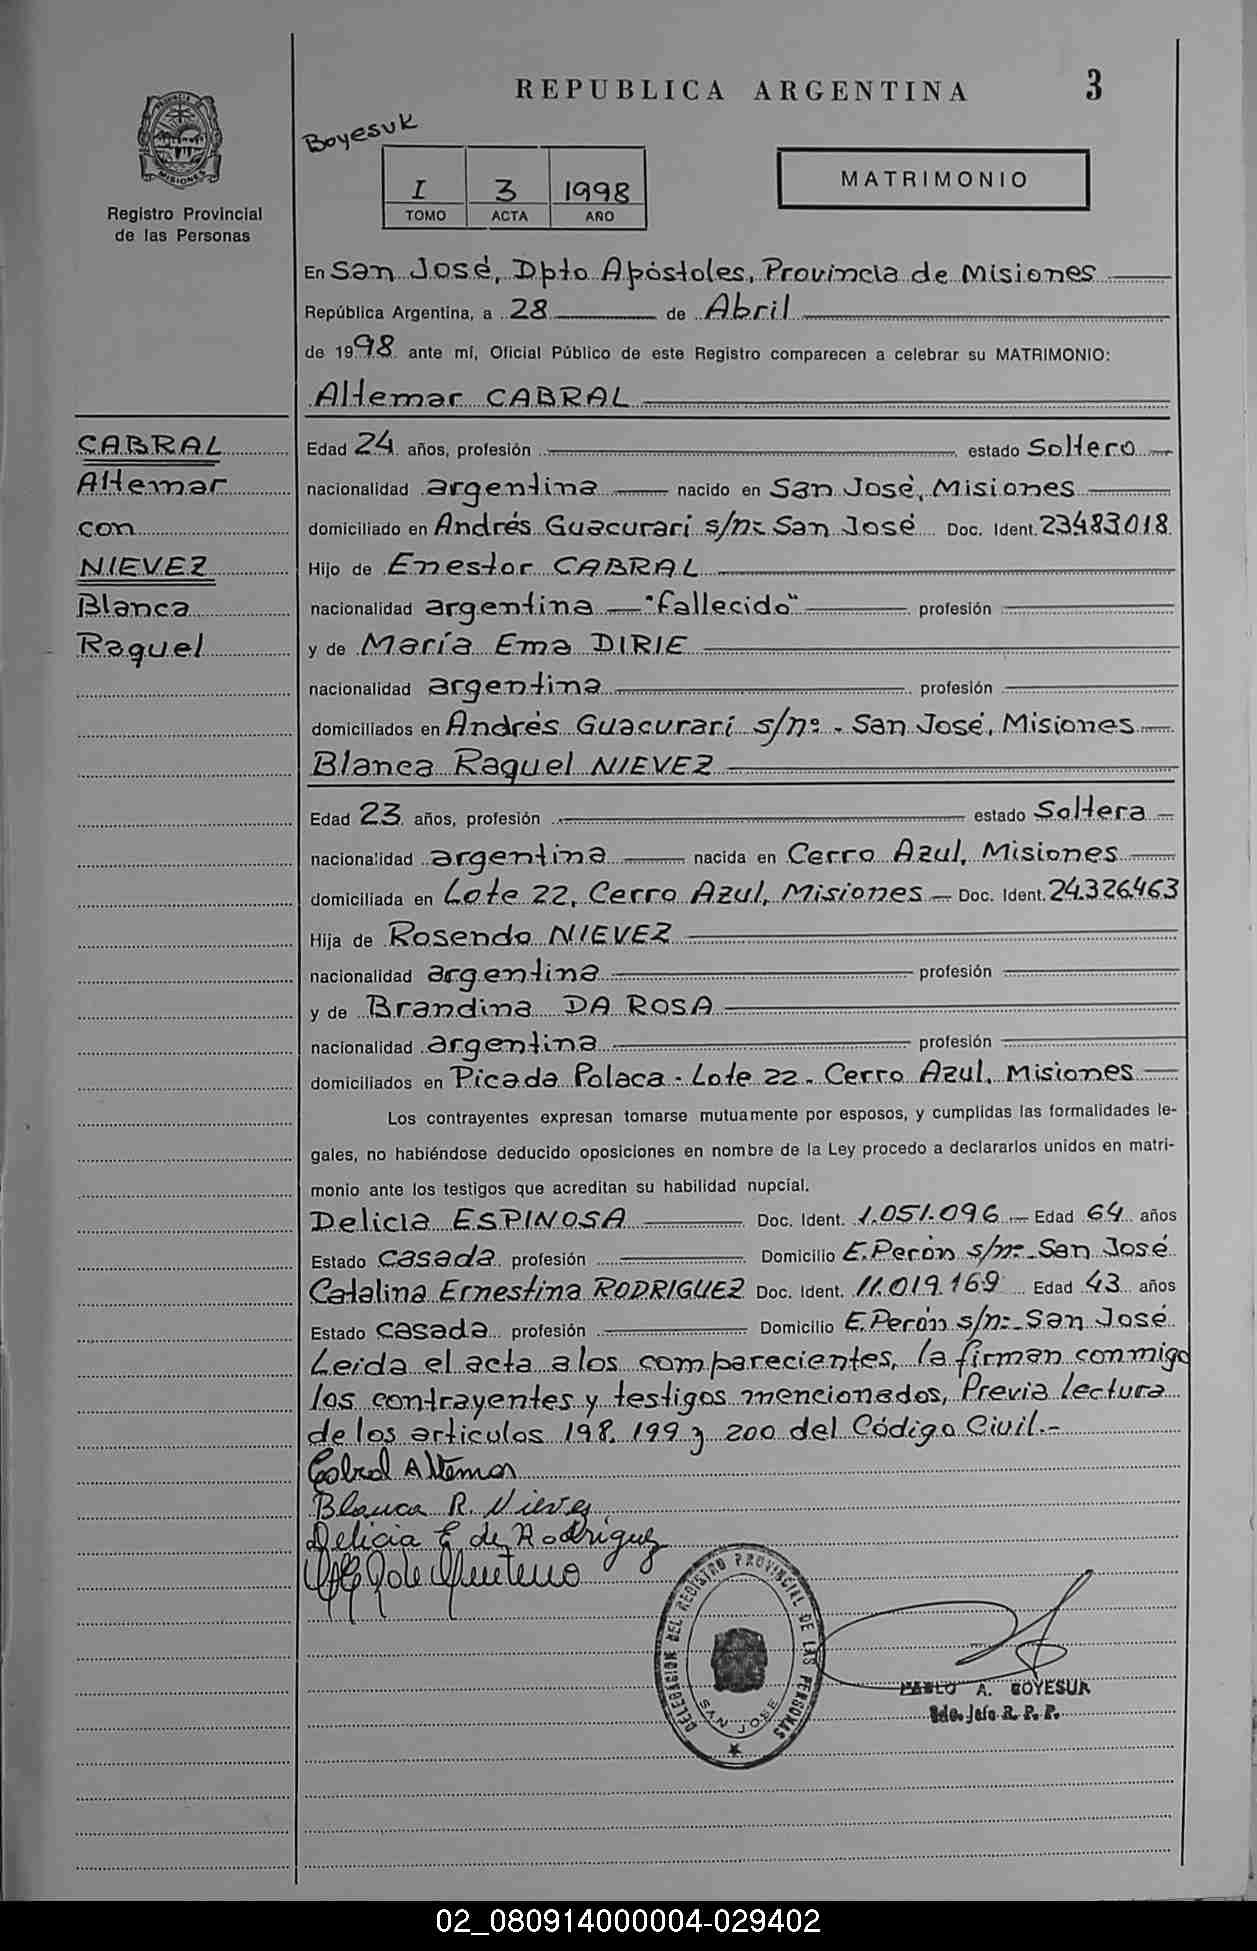 REPUBLICA ARGENTINA 3
Boyesuk
PROVINCIA DE MISIONES
I 3 1998
TOMO ACTA AÑO
MATRIMONIO
Registro Provincial
de las Personas
En San José, Dpto Apóstoles, Provincia de Misiones
República Argentina, a 28 de Abril
de 1998 ante mí, Oficial Público de este Registro comparecen a celebrar su MATRIMONIO:
Altemar CABRAL
CABRAL
Altemar
con
NIEVEZ
Blanca
Raquel
Edad 24 años, profesión estado Soltero
nacionalidad argentina nacido en San José, Misiones
domiciliado en Andrés Guacurarí s/nº San José Doc. Ident. 23.483.018
Hijo de Enestor CABRAL
nacionalidad argentina "fallecido" profesión
y de María Ema DIRIE
nacionalidad argentina profesión
domiciliados en Andrés Guacurarí s/nº - San José, Misiones
Blanca Raquel NIEVEZ
Edad 23 años, profesión estado Soltera
nacionalidad argentina nacida en Cerro Azul, Misiones
domiciliada en Lote 22, Cerro Azul, Misiones Doc. Ident. 24.326.463
Hija de Rosendo NIEVEZ
nacionalidad argentina profesión
y de Brandina DA ROSA
nacionalidad argentina profesión
domiciliados en Picada Polaca - Lote 22 - Cerro Azul, Misiones
Los contrayentes expresan tomarse mutuamente por esposos, y cumplidas las formalidades le-
gales, no habiéndose deducido oposiciones en nombre de la Ley procedo a declararlos unidos en matri-
monio ante los testigos que acreditan su habilidad nupcial.
Delicia ESPINOSA Doc. Ident. 1.051.096 Edad 64 años
Estado casada profesión Domicilio E. Perón s/nº San José
Catalina Ernestina RODRIGUEZ Doc. Ident. 11.019.169 Edad 43 años
Estado casada profesión Domicilio E. Perón s/nº San José
Leída el acta a los comparecientes, la firman conmigo
los contrayentes y testigos mencionados, Previa lectura
de los articulos 198, 199 y 200 del Código Civil.-
Cabral Altemar
Blanca R. Nievez
Delicia E de Rodriguez
DELEGACION DEL REGISTRO PROVINCIAL DE LAS PERSONAS
SAN JOSE
PABLO A. BOYESUK
R. P. P.
02_080914000004-029402